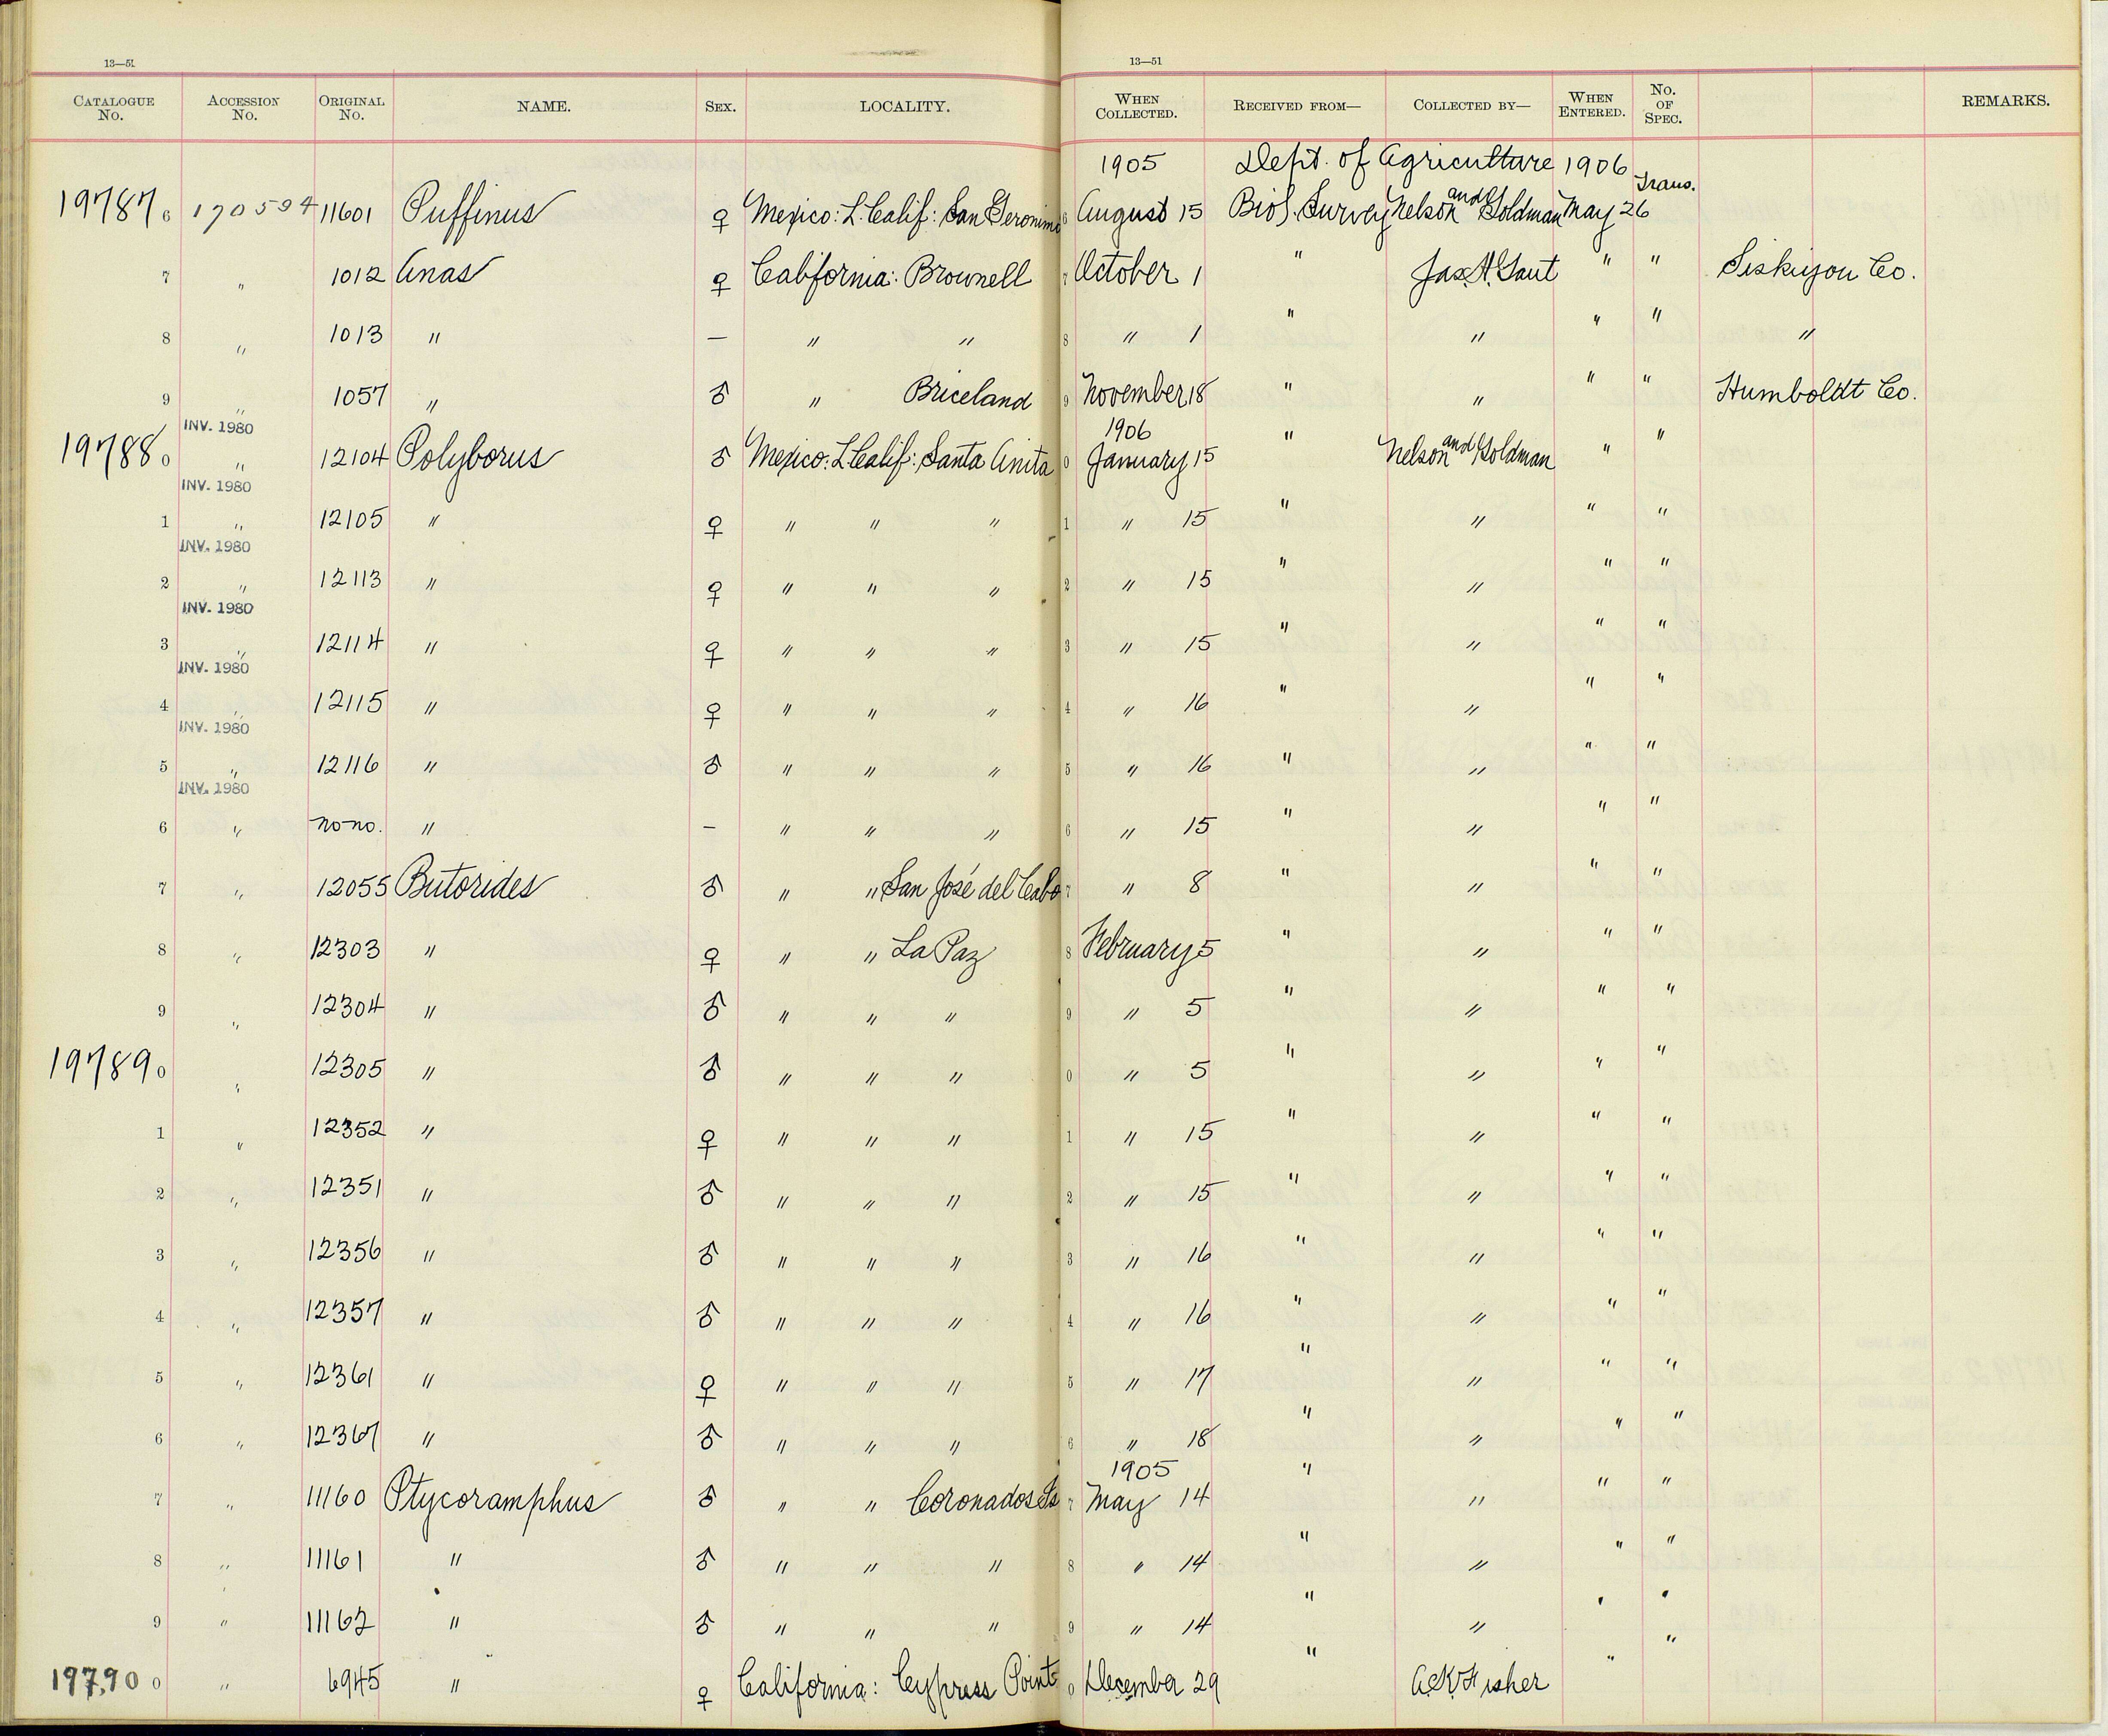 13—51 13—51
CATALOGUE No. ACCESSION No. ORIGINAL No. NAME. SEX. LOCALITY. WHEN COLLECTED. RECEIVED FROM— COLLECTED BY— WHEN ENTERED. No. OF SPEC. REMARKS.
1905 Dept. of Agriculture 1906
19787 6 170594 11601 Puffinus ♀ Mexico: L. Calif: San Geronimo 6 August 15 Biol. Survey Nelson and Goldman May 26 Trans.
7 " 1012 Anas ♀ California: Brownell 7 October 1 " Jas. H. Gaut " " Siskiyou Co.
8 " 1013 " — " " 8 " 1 " " " " "
9 " 1057 " ♂ " Briceland 9 November 18 " " " " Humboldt Co.
INV. 1980 1906
19788 0 " 12104 Polyborus ♂ Mexico: L Calif: Santa Anita 0 January 15 " Nelson and Goldman " "
INV. 1980
1 " 12105 " ♀ " " " 1 " 15 " " " "
INV. 1980
2 " 12113 " ♀ " " " 2 " 15 " " " "
INV. 1980
3 " 12114 " ♀ " " " 3 " 15 " " " "
INV. 1980
4 " 12115 " ♀ " " " 4 " 16 " " " "
INV. 1980
5 " 12116 " ♂ " " " 5 " 16 " " " "
INV. 1980
6 " no no. " — " " " 6 " 15 " " " "
7 " 12055 Butorides ♂ " " San José del Cabo 7 " 8 " " " "
8 " 12303 " ♀ " " La Paz 8 February 5 " " " "
9 " 12304 " ♂ " " " 9 " 5 " " " "
19789 0 " 12305 " ♂ " " " 0 " 5 " " " "
1 " 12352 " ♀ " " " 1 " 15 " " " "
2 " 12351 " ♂ " " " 2 " 15 " " " "
3 " 12356 " ♂ " " " 3 " 16 " " " "
4 " 12357 " ♂ " " " 4 " 16 " " " "
5 " 12361 " ♀ " " " 5 " 17 " " " "
6 " 12367 " ♂ " " " 6 " 18 " " " "
1905
7 " 11160 Ptycoramphus ♂ " " Coronados Is 7 May 14 " " " "
8 " 11161 " ♂ " " " 8 " 14 " " " "
9 " 11162 " ♂ " " " 9 " 14 " " " "
19790 0 " 6945 " ♀ California: Cypress Point 0 December 29 " A.K. Fisher " "